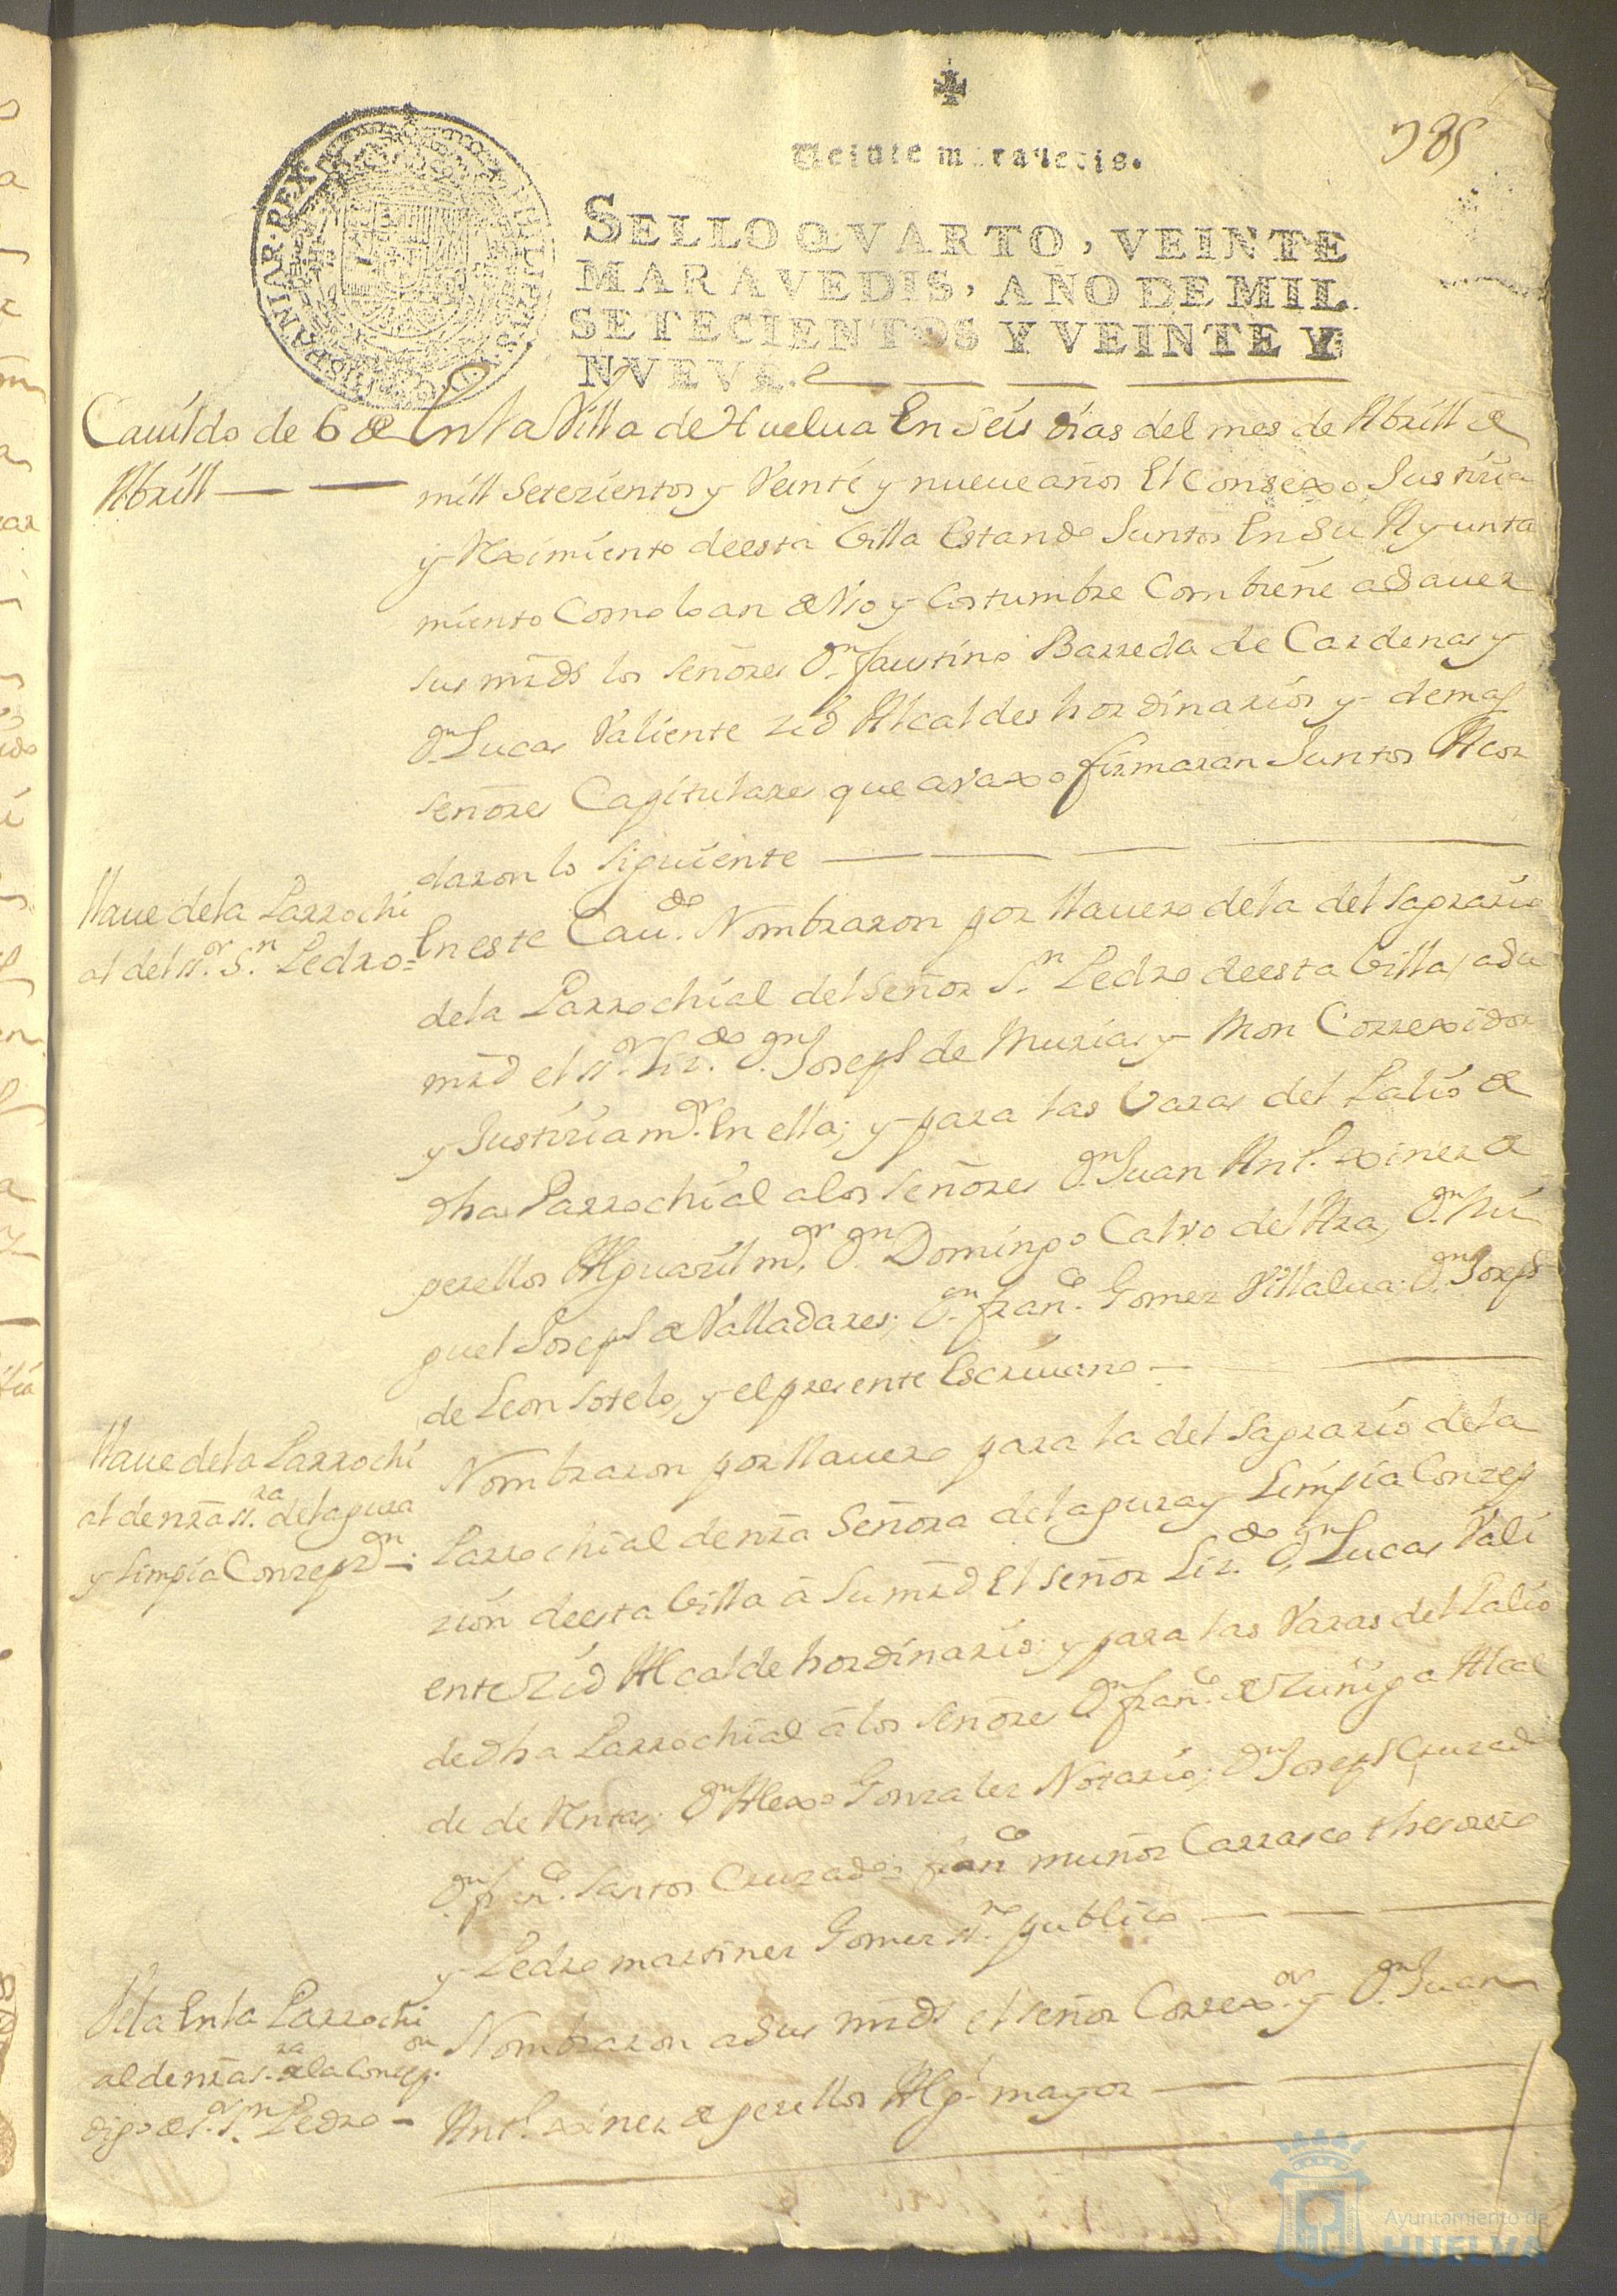 Veinte maravedis.
385
SELLO QVARTO, VEINTE
MARAVEDIS, AÑO DE MIL
SETECIENTOS Y VEINTE Y
NVEVE.
HISPANIAR·REX
Cauildo de 6 de
Abrill
En la Villa de Huelua En Seis dias del mes de Abrill de
mill Setezientos y Veinte y nueue años El Consexo Justizia
y Reximiento de esta Villa Estando Juntos En Su Ayunta
miento Como lo an de Vso y Costumbre Combiene a Sauer
sus mrds los Señores Dn. faustino Barreda de Cardenas y
Dn. Lucas Valiente zid Alcaldes hordinarios y demas
Señores Capitulares que avaxo firmaran Juntos Acor
daron lo Siguiente
llaue de la Parrochi
al del Sr. Sn. Pedro=
En este Caudo. Nombraron por llauero de la del Sagrario
de la Parrochial del Señor Sn. Pedro de esta Villa, a Su
mrd el Sr. Lizdo. Dn. Joseph de Murias y Mon Correxidor
y Justizia mor. En ella; y para las Varas del Palio de
dha Parrochial a los Señores Dn. Juan Antº. xinez de
perellos Alguazil mor, Dn. Domingo Calvo del Ara, Dn. Mi
guel Joseph de Valladares; Dn. franco. Gomez Villalua; Dn. Joseph
de Leon Sotelo, y el presente Escriuano
llaue de la Parrochi
al de nra Sra. de la pura
y limpia Conzepzon=
Nombraron por llauero para la del Sagrario de la
Parrochial de nra Señora de la pura y Limpia Conzep
zion de esta Villa a Su mrd El Señor Lizdo. Dn. Lucas Vali
ente zid Alcalde hordinario; y para las Varas del Palio
de dha Parrochial a los Señores Dn. franco. de Zuñiga Alcal
de de Antas; Dn. Alexo Gonzalez Notario; Dn. Joseph Cruzado
Dn. franco. Santos Cruzado; franco muñoz Carrasco thesorero
y Pedro martinez Gomez SSno. publico
Vela En la Parrochi
al de nra Sra. de la Conzepon.
digo de Sr. Sn. Pedro
Nombraron a Sus mrds el Señor Correxor. y Dn. Juan
Antº. xinez de perellos Algl. mayor
Ayuntamiento de
HUELVA